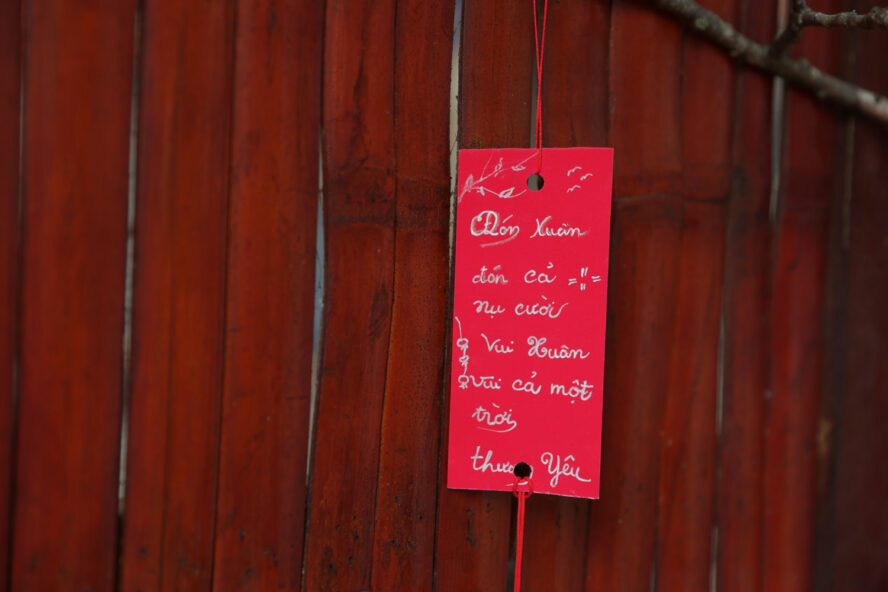 Đón Xuân
đón cả
nụ cười
Vui Xuân
vui cả một
trời
thương Yêu